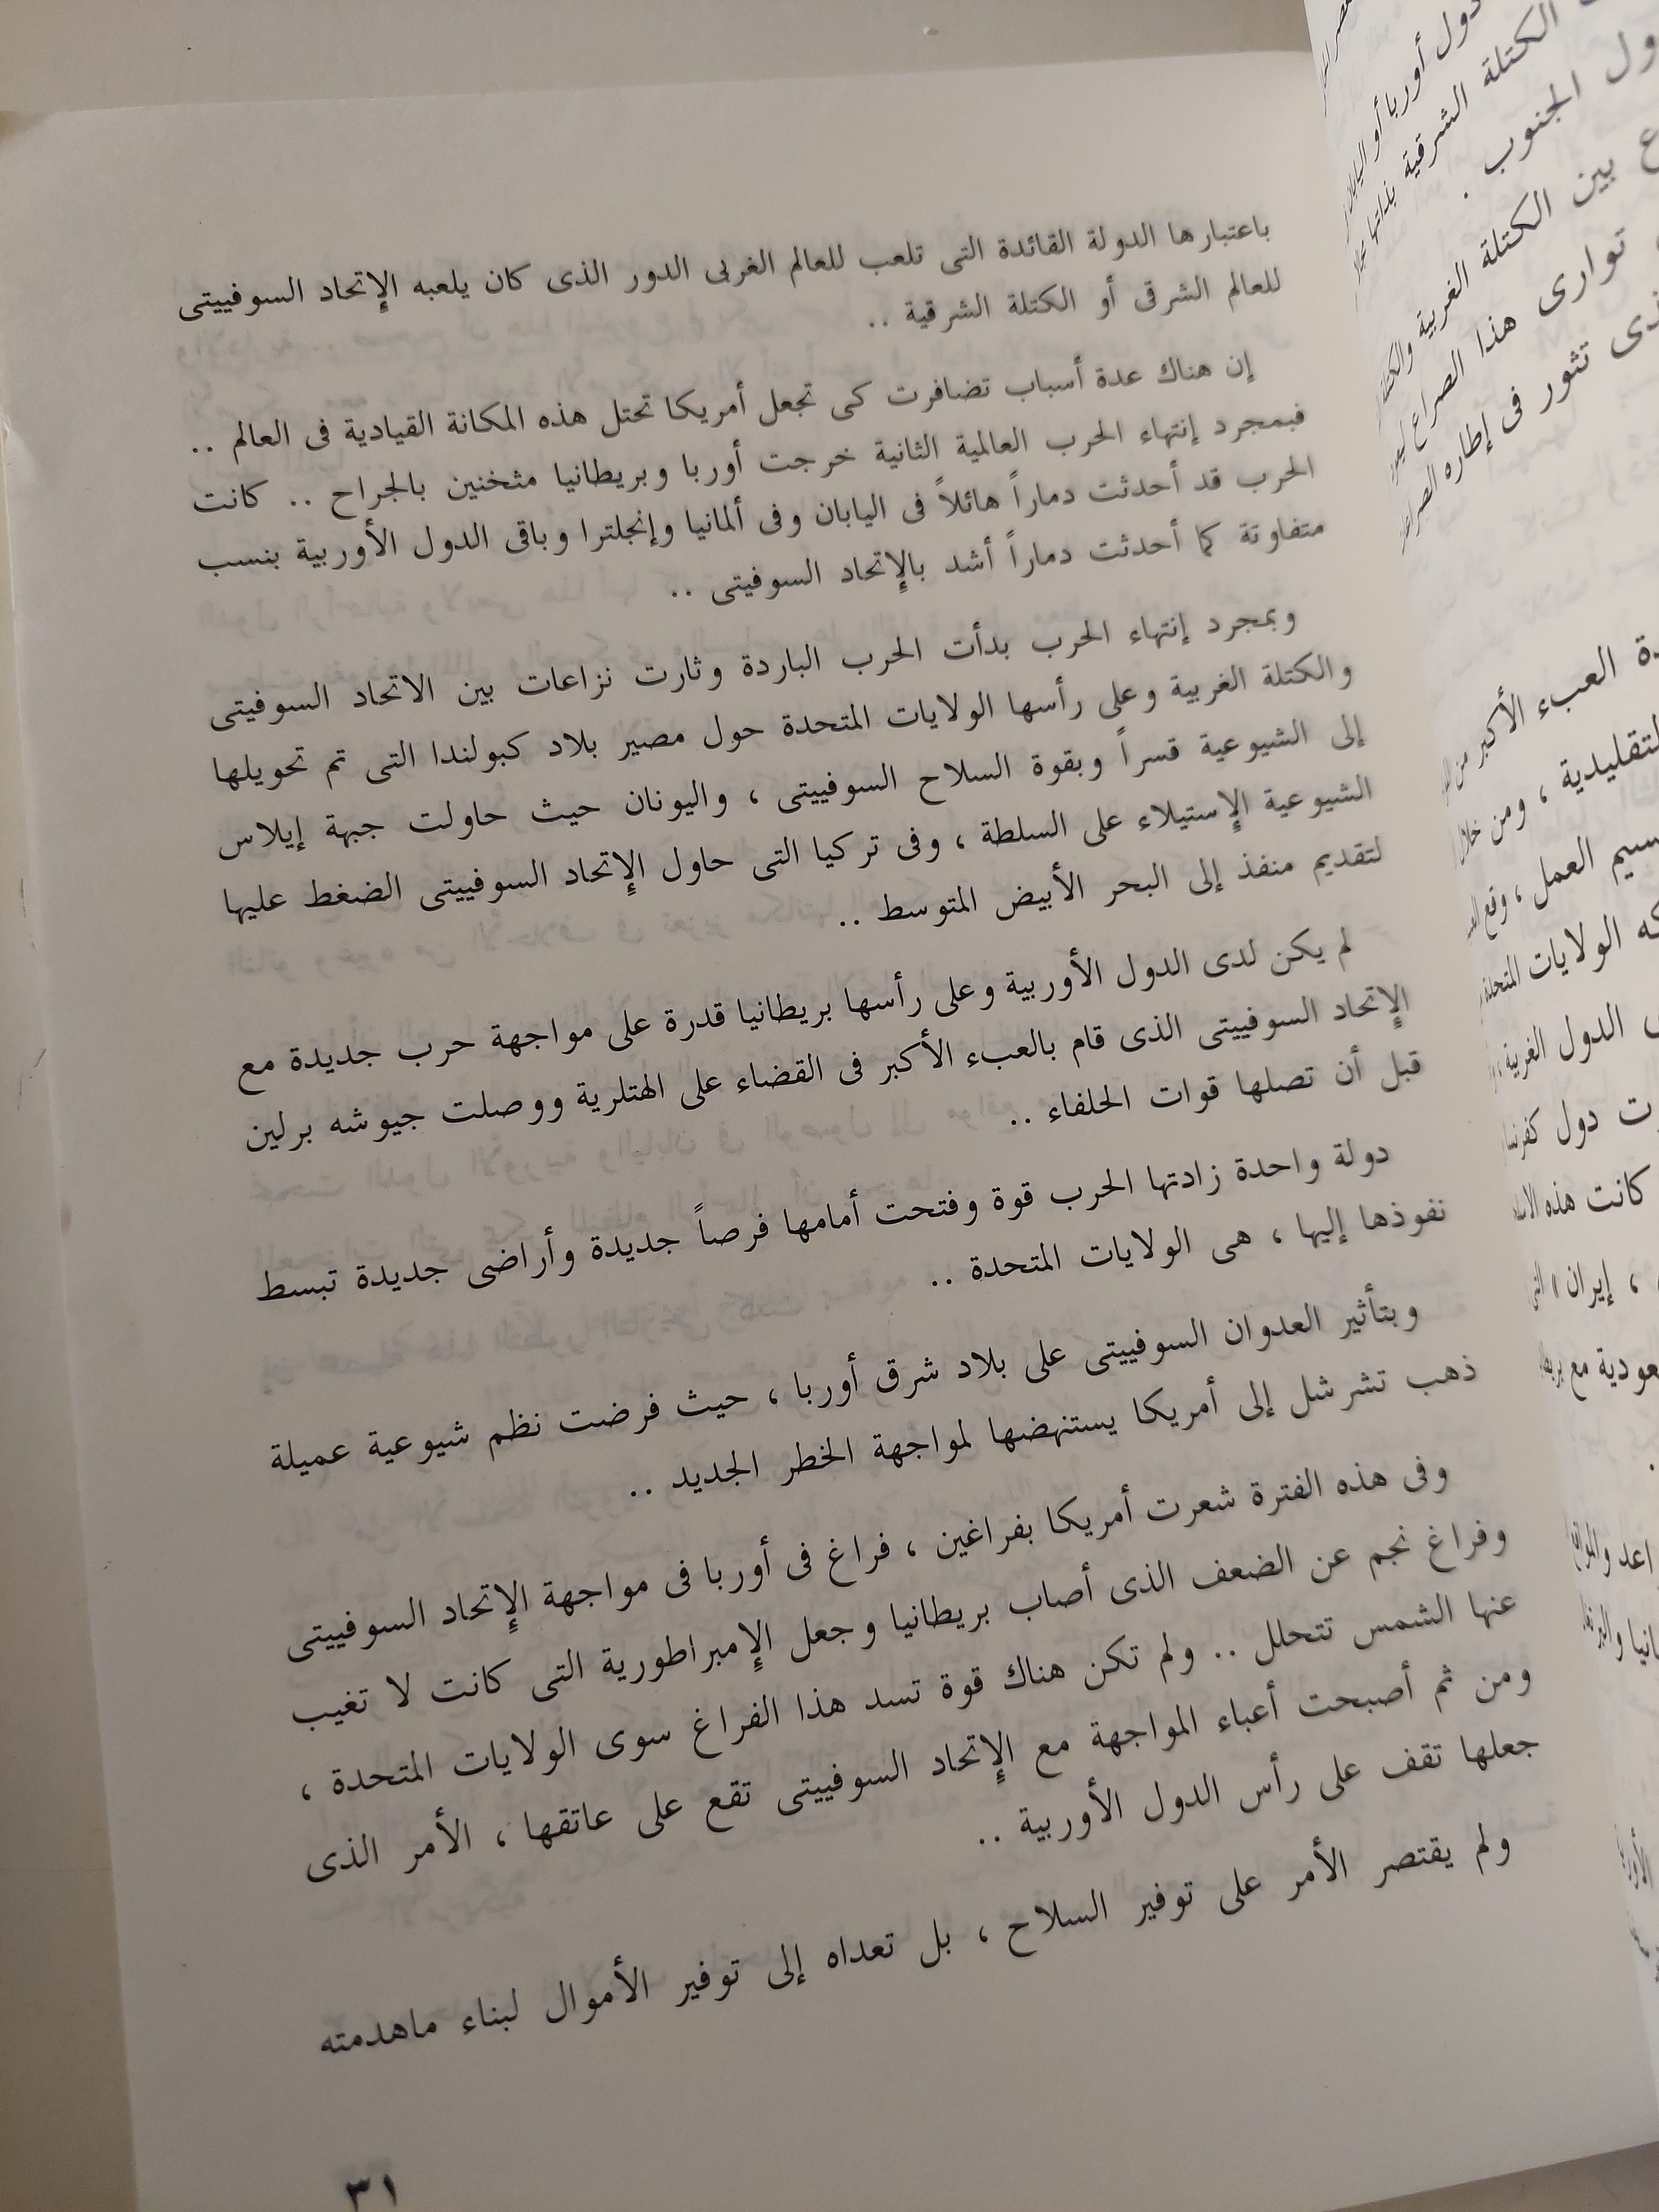 باعتبارها الدولة القائدة التى تلعب للعالم الغربى الدور الذى كان يلعبه الإتحاد السوفييتى
للعالم الشرقى أو الكتلة الشرقية ..
إن هناك عدة أسباب تضافرت كى تجعل أمريكا تحتل هذه المكانة القيادية فى العالم ..
فبمجرد إنتهاء الحرب العالمية الثانية خرجت أوربا وبريطانيا مثخنين بالجراح .. كانت
الحرب قد أحدثت دماراً هائلاً فى اليابان وفى ألمانيا وإنجلترا وباقى الدول الأوربية بنسب
متفاوتة كما أحدثت دماراً أشد بالإتحاد السوفيتى ..
وبمجرد إنتهاء الحرب بدأت الحرب الباردة وثارت نزاعات بين الاتحاد السوفيتى
والكتلة الغربية وعلى رأسها الولايات المتحدة حول مصير بلاد كبولندا التى تم تحويلها
إلى الشيوعية قسراً وبقوة السلاح السوفييتى ، واليونان حيث حاولت جبهة إيلاس
الشيوعية الإستيلاء على السلطة ، وفى تركيا التى حاول الإتحاد السوفييتى الضغط عليها
لتقديم منفذ إلى البحر الأبيض المتوسط ..
لم يكن لدى الدول الأوربية وعلى رأسها بريطانيا قدرة على مواجهة حرب جديدة مع
الإتحاد السوفييتى الذى قام بالعبء الأكبر فى القضاء على الهتلرية ووصلت جيوشه برلين
قبل أن تصلها قوات الحلفاء ..
دولة واحدة زادتها الحرب قوة وفتحت أمامها فرصاً جديدة وأراضى جديدة تبسط
نفوذها إليها ، هى الولايات المتحدة ..
وبتأثير العدوان السوفييتى على بلاد شرق أوربا ، حيث فرضت نظم شيوعية عميلة
ذهب تشرشل إلى أمريكا يستنهضها لمواجهة الخطر الجديد ..
وفى هذه الفترة شعرت أمريكا بفراغين ، فراغ فى أوربا فى مواجهة الإتحاد السوفييتى
وفراغ نجم عن الضعف الذى أصاب بريطانيا وجعل الإمبراطورية التى كانت لا تغيب
عنها الشمس تتحلل .. ولم تكن هناك قوة تسد هذا الفراغ سوى الولايات المتحدة ،
ومن ثم أصبحت أعباء المواجهة مع الإتحاد السوفييتى تقع على عاتقها ، الأمر الذى
جعلها تقف على رأس الدول الأوربية ..
ولم يقتصر الأمر على توفير السلاح ، بل تعداه إلى توفير الأموال لبناء ماهدمته
٣١
دول أوربا أو
الكتلة الشرقية بذاتها
الجنوب .
بين الكتلة الغربية
توارى هذا الصراع
تثور فى إطاره
العبء الأكبر من
التقليدية ، ومن خلال
العمل ، وقع
الولايات المتحدة
الدول الغربية
دول
كانت هذه
، إيران
مع